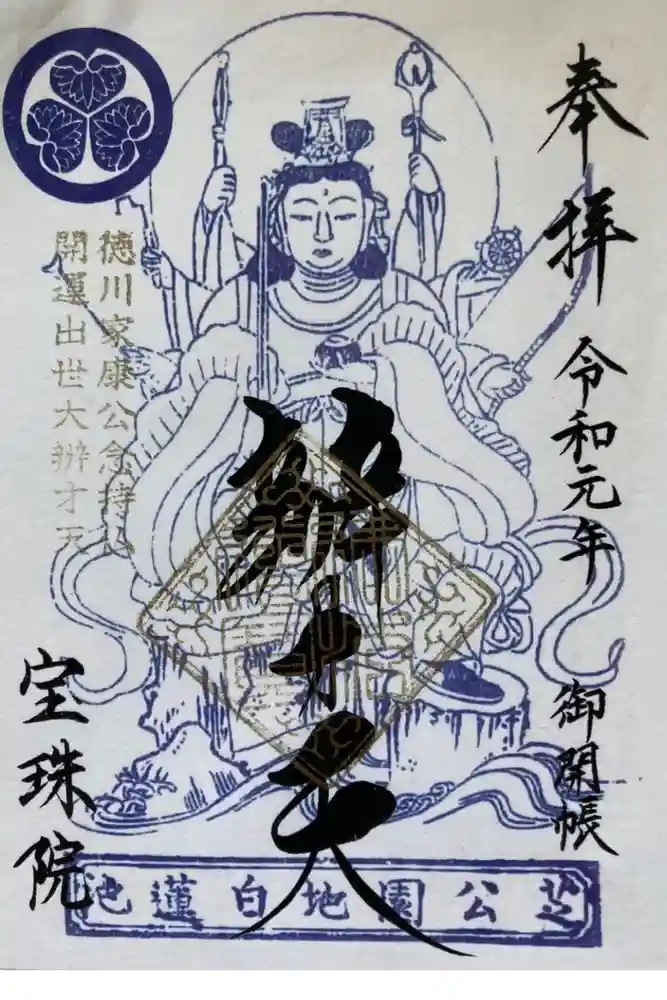 奉拝
令和元年
御開帳
辨才天
徳川家康公念持仏
開運出世大辨才天
宝珠院
芝公園地白蓮池